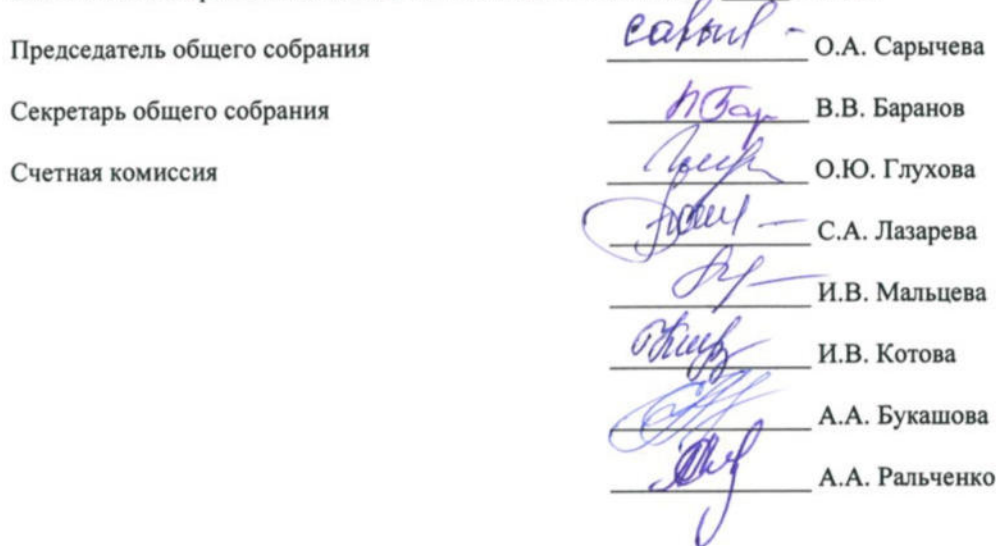 Председатель общего собрания О.А. Сарычева
Секретарь общего собрания В.В. Баранов
Счетная комиссия О.Ю. Глухова
С.А. Лазарева
И.В. Мальцева
И.В. Котова
А.А. Букашова
А.А. Ральченко